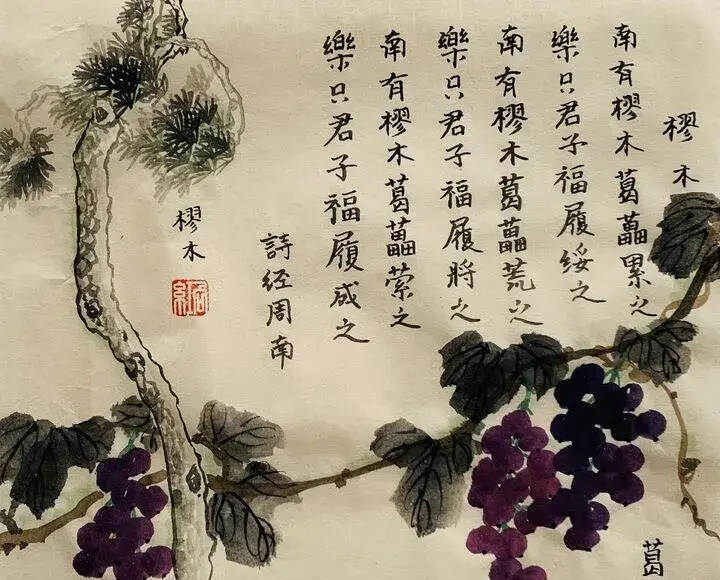 樛木
南有樛木葛藟累之
樂只君子福履綏之
南有樛木葛藟荒之
樂只君子福履將之
南有樛木葛藟萦之
樂只君子福履成之
詩经周南
樛木
葛